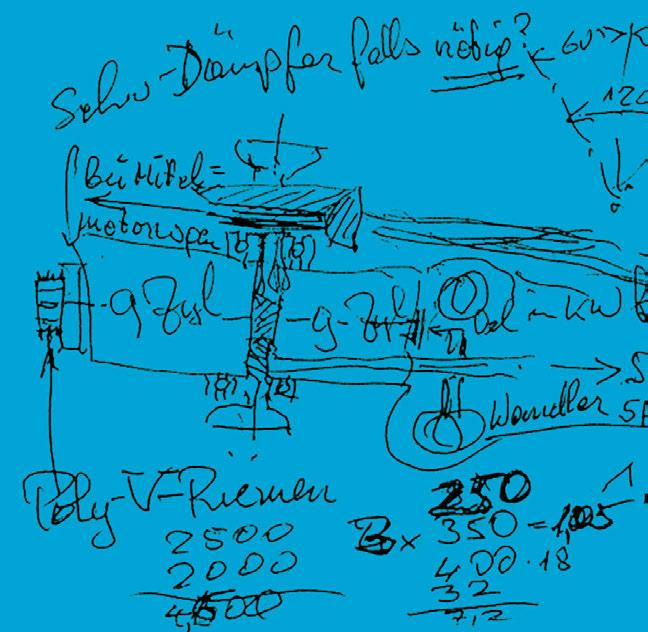 Schw-Dämpfer falls nötig?
60°
120
Bei Mittel=
motorwagen
9 Zyl
9-Zyl
Öl in KW
Wandler
Poly-V-Riemen
2500
2000
4500
250
350 = 1,05
400 · 18
32
7,2